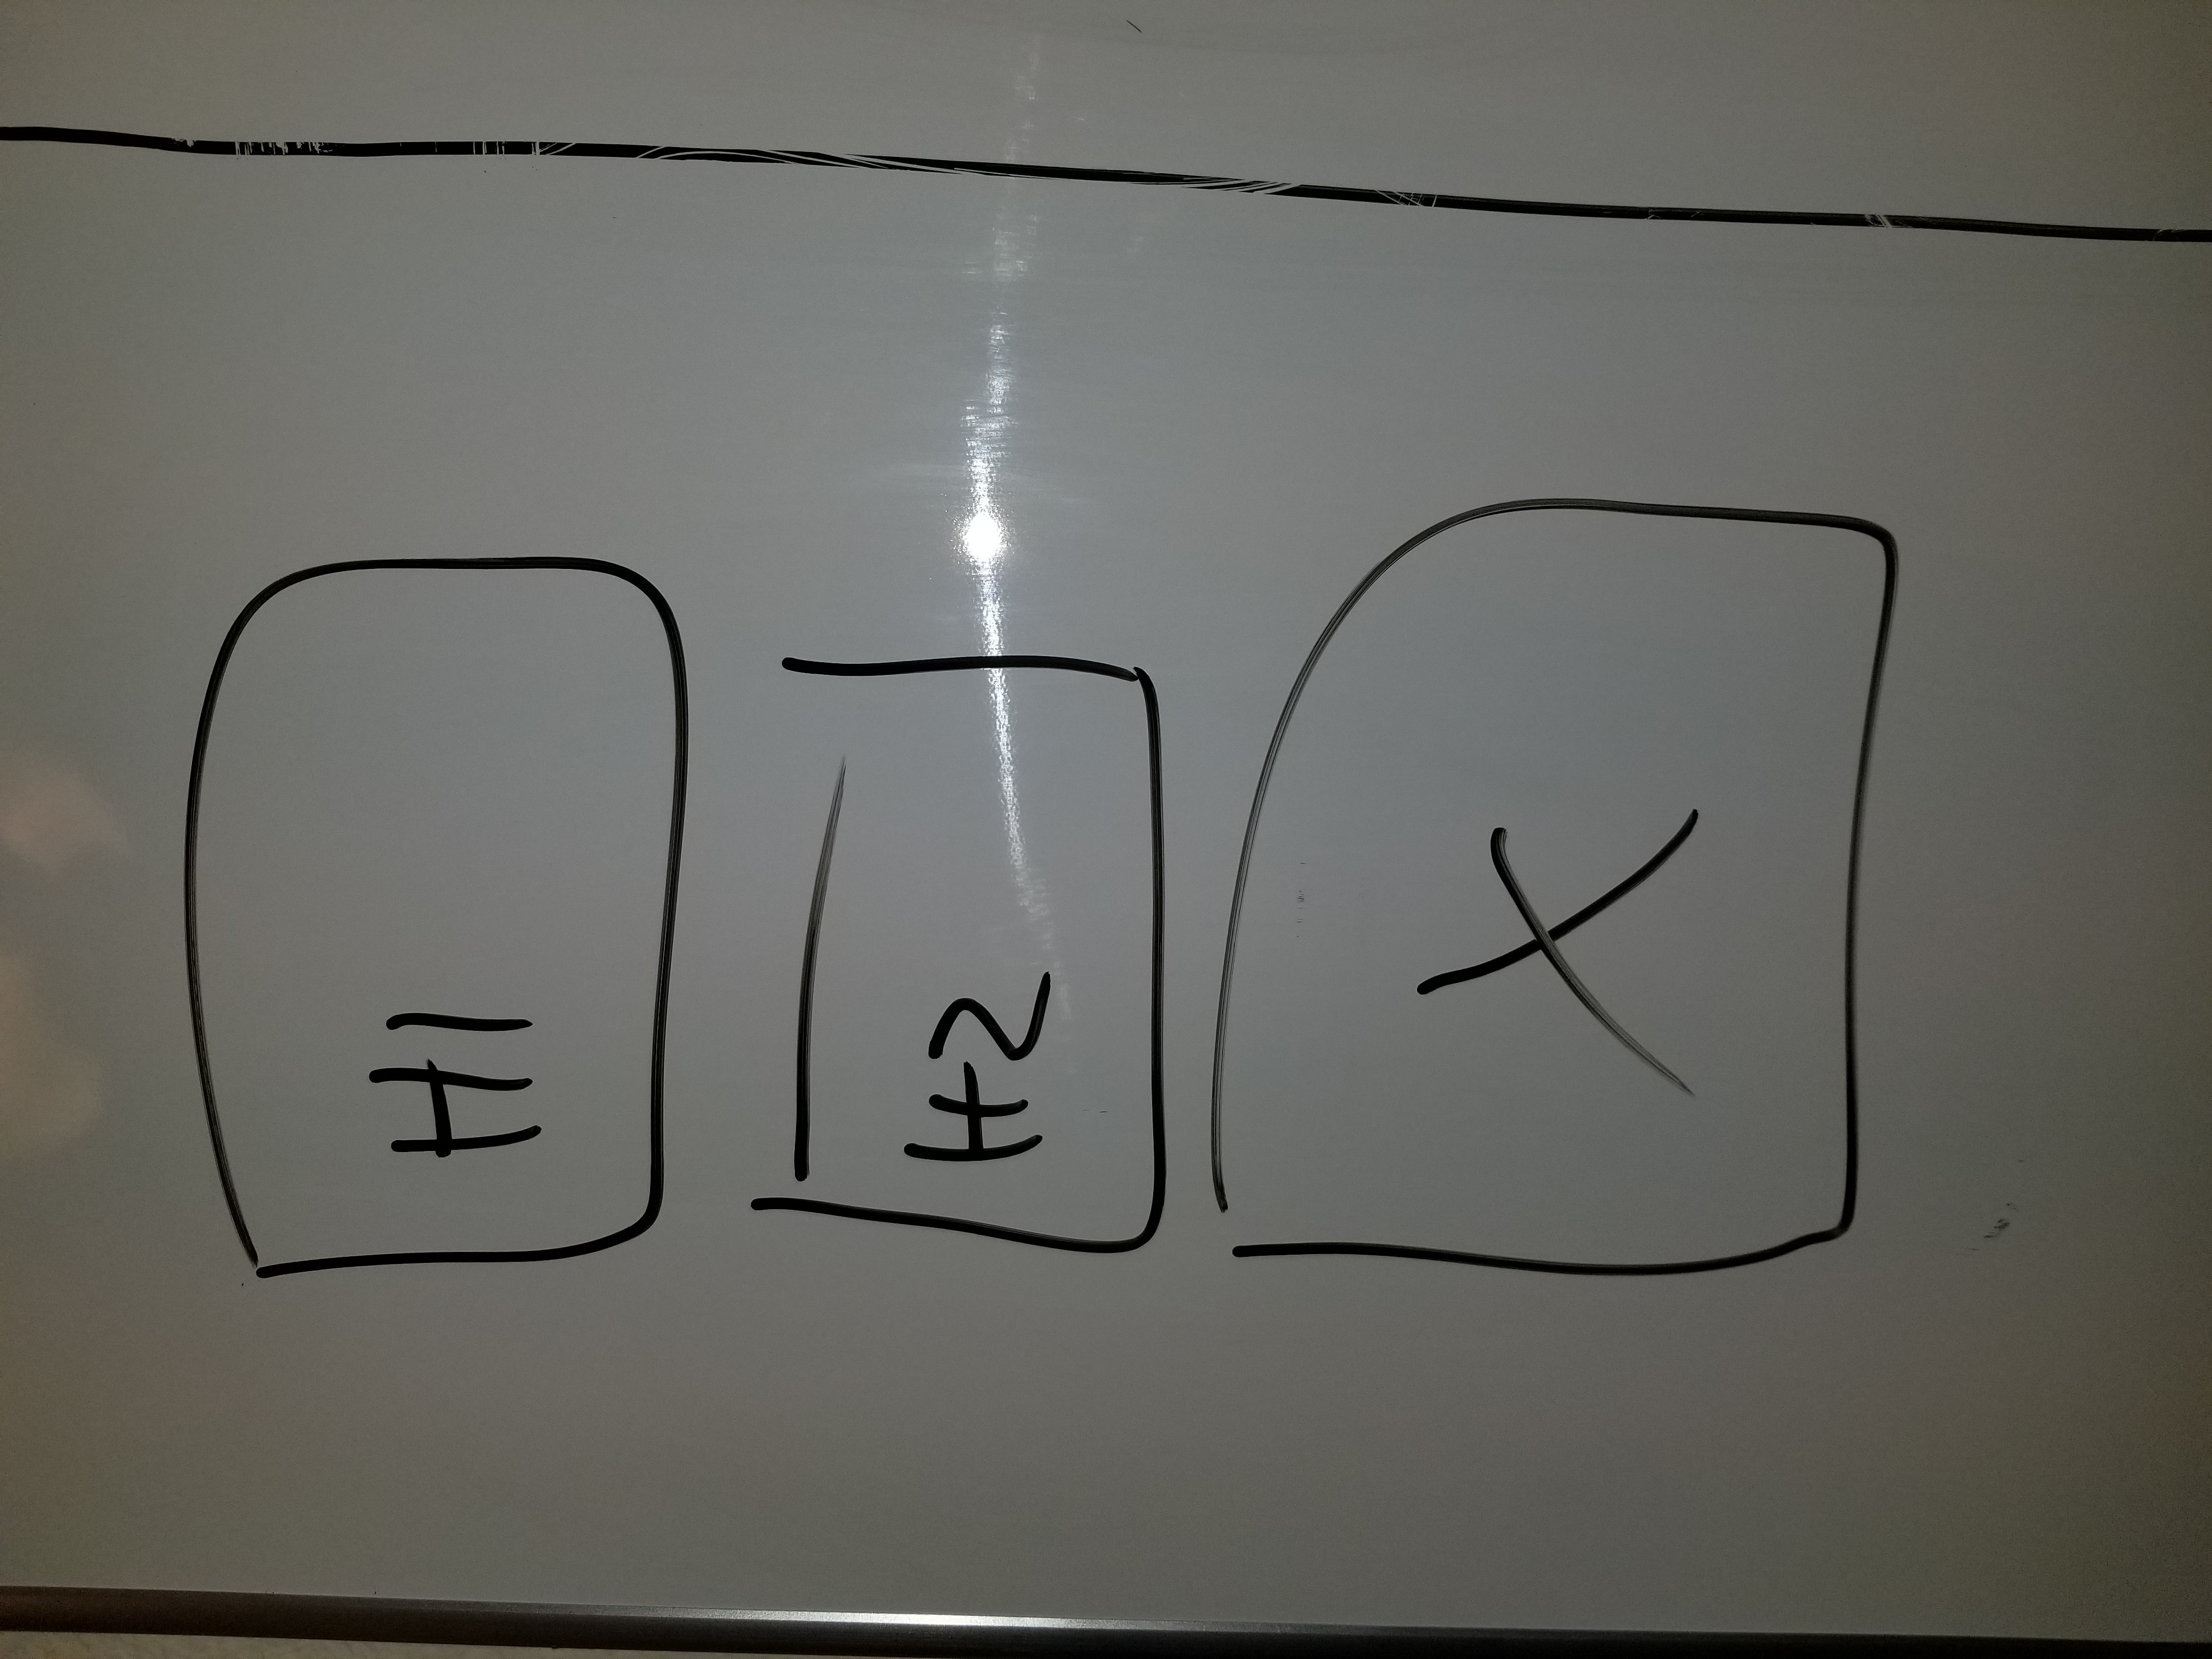 H1
H2
X